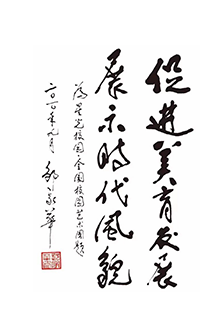 促进美育发展
展示时代风貌
为星光校园全国校园艺术周题
二〇一〇年九月 邹家华